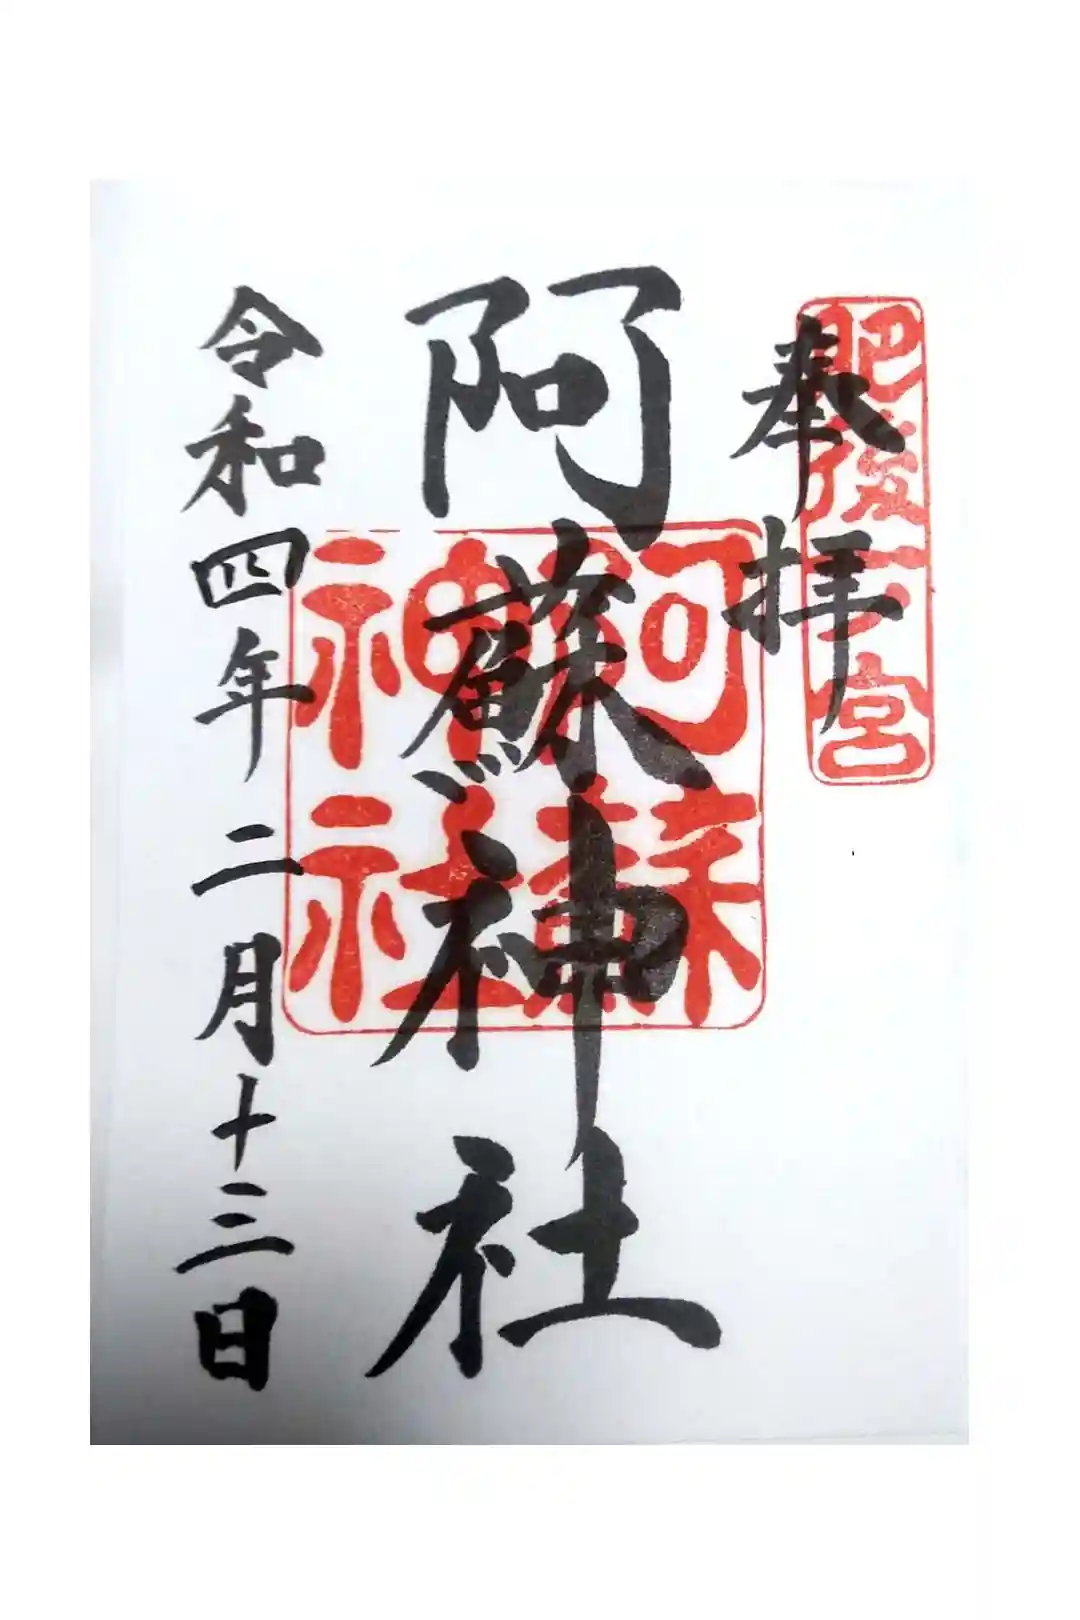 奉拝
肥後一之宮
阿蘇神社
阿蘇神社
令和四年二月十三日